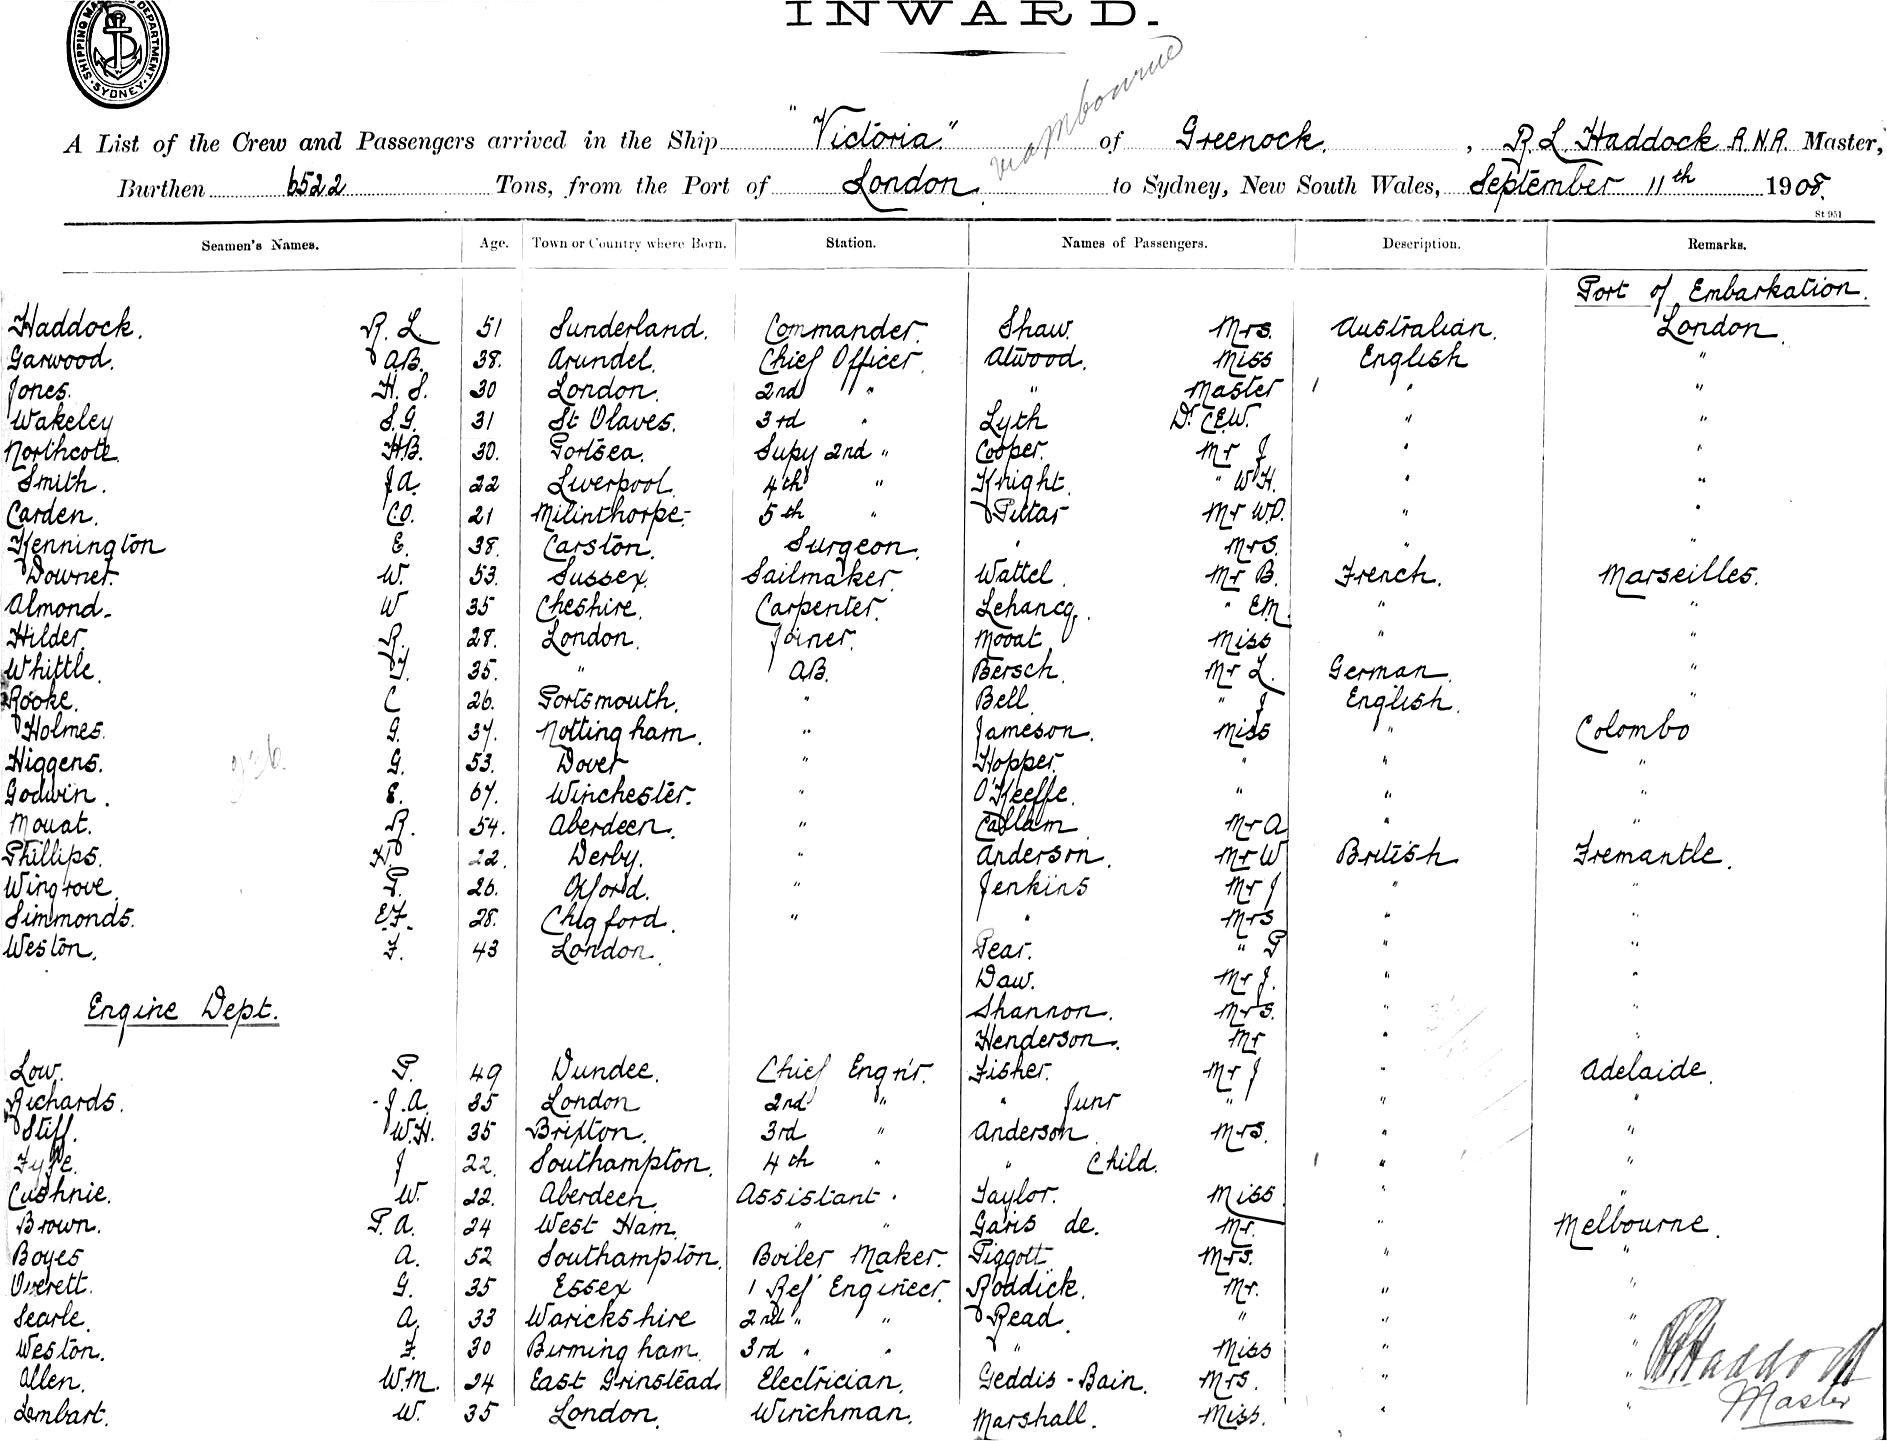 SHIPPING MASTER'S DEPARTMENT. SYDNEY
INWARD.
via Mbourne
A List of the Crew and Passengers arrived in the Ship "Victoria" of Greenock. , R. L. Haddock R.N.R. Master,
Burthen 6522 Tons, from the Port of London. to Sydney, New South Wales, September 11th 1908.
St 951
Seamen's Names. Age. Town or Country where Born. Station. Names of Passengers. Description. Remarks.
Port of Embarkation.
Haddock. R. L. 51 Sunderland. Commander. Shaw. Mrs. Australian. London.
Garwood. A.B. 38. Arundel. Chief Officer. Atwood. Miss English "
Jones. H. S. 30 London. 2nd " " Master 1 " "
Wakeley S.G. 31 St Olaves. 3rd " Lyth Dr. C.E.W. " "
Northcote. H.B. 30. Portsea. Supy 2nd " Cooper. Mr J " "
Smith. J.A. 22 Liverpool. 4th " Knight. " W.H. " "
Carden. C.O. 21 Milinthorpe. 5th " Pittar Mr W.D. " "
Kennington E. 38. Carston. Surgeon. " Mrs. " "
Downer. W. 53. Sussex. Sailmaker. Wattel. Mr B. French. Marseilles.
Almond. W 35 Cheshire. Carpenter. Lehancq. " E.M. " "
Hilder. R. 28. London. Joiner. Mooat Miss " "
Whittle. 35. " A.B. Bersch. Mr L. German. "
Rooke. C 26. Portsmouth. " Bell " J English. "
Holmes. G. 37. Nottingham. " Jameson. Miss " Colombo
Higgens. G. 53. Dover " Hopper. " " "
Godwin. E. 67. Winchester. " O'Keeffe. " " "
Mouat. R. 54. Aberdeen. " Callam Mr A " "
Phillips. 22. Derby. " Anderson. Mr W British Fremantle.
Wingrove. P. 26. Oxford. " Jenkins Mr J " "
Simmonds. E.F. 28. Chigford. " " Mrs " "
Weston. F. 43 London. Pear. " P " "
Daw. Mr J. " "
Engine Dept. Shannon. Mrs. " "
Henderson. Mr " "
Low. P. 49 Dundee. Chief Engr's. Fisher. Mr J " Adelaide.
Richards. J.A. 35 London 2nd " " Junr " " "
Stiff. W.H. 35 Brixton. 3rd " Anderson Mrs. " "
Fyfe. J 22. Southampton. 4th " " Child. 1 " "
Cushnie. W. 22. Aberdeen. Assistant " Taylor. Miss " "
Brown. P. A. 24 West Ham. " " Garis de. Mr. " Melbourne.
Boyes A. 52 Southampton. Boiler Maker. Piggott Mrs. " "
Overett. G. 35 Essex 1 Ref' Engineer. Roddick. Mr. " "
Searle. A. 33 Warickshire 2nd " " Read. " " "
Weston. F. 30 Birmingham. 3rd " " " Miss " "
Allen. W.M. 24 East Grinstead. Electrician. Geddis-Bain. Mrs. " "
Lambart. W. 35 London. Winchman. Marshall. Miss. " "
R L Haddock
Master